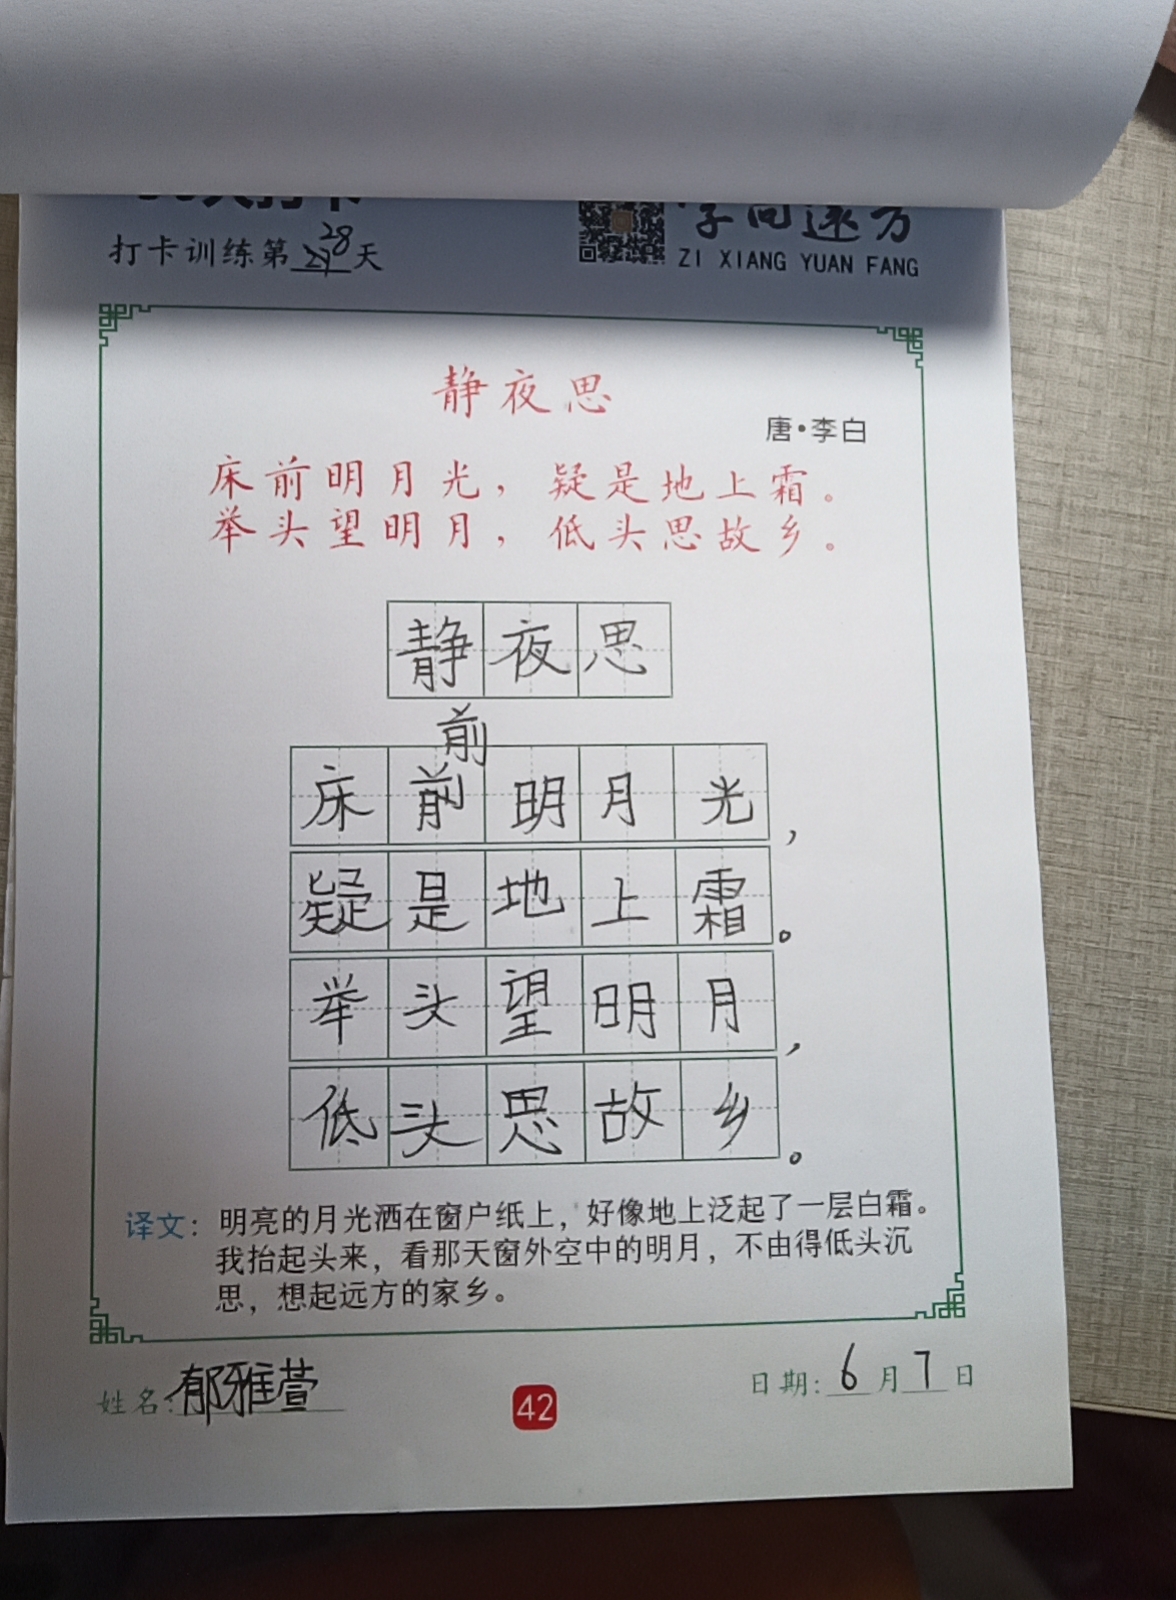 打卡训练第28天
字向远方
ZI XIANG YUAN FANG
静夜思
唐·李白
床前明月光，疑是地上霜。
举头望明月，低头思故乡。
静夜思
前
床前明月光，
疑是地上霜。
举头望明月，
低头思故乡。
译文：明亮的月光洒在窗户纸上，好像地上泛起了一层白霜。
我抬起头来，看那天窗外空中的明月，不由得低头沉
思，想起远方的家乡。
姓名：郁雅萱
42
日期：6月7日